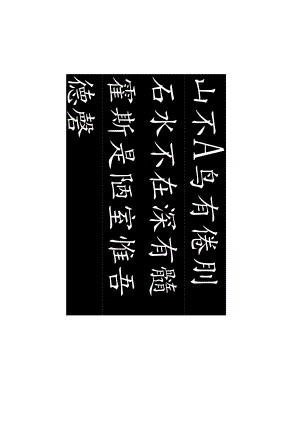 山不A鸟有倦刖
石水不在深有髓
霍斯是陋室惟吾
德磬